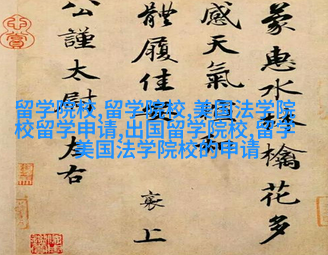 留学院校,留学院校,美国法学院
校留学申请,出国留学院校,留学
美国法学院校的申请
蒙惠水林檎花多
感天氣和
體履佳
襄上
公謹太尉左右